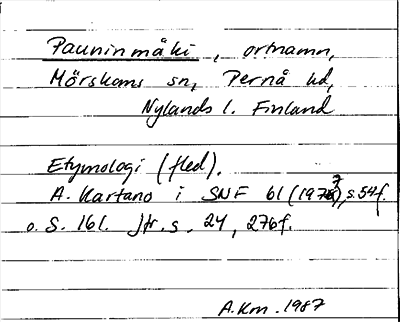 Pauninmäki, ortnamn,
Mörskoms sn, Pernå hd,
Nylands l. Finland
Etymologi (fled).
A. Kartano i SNF 61 (1973), s. 54f.
o. S. 161. Jfr. s. 24, 276f.
A.Km. 1987